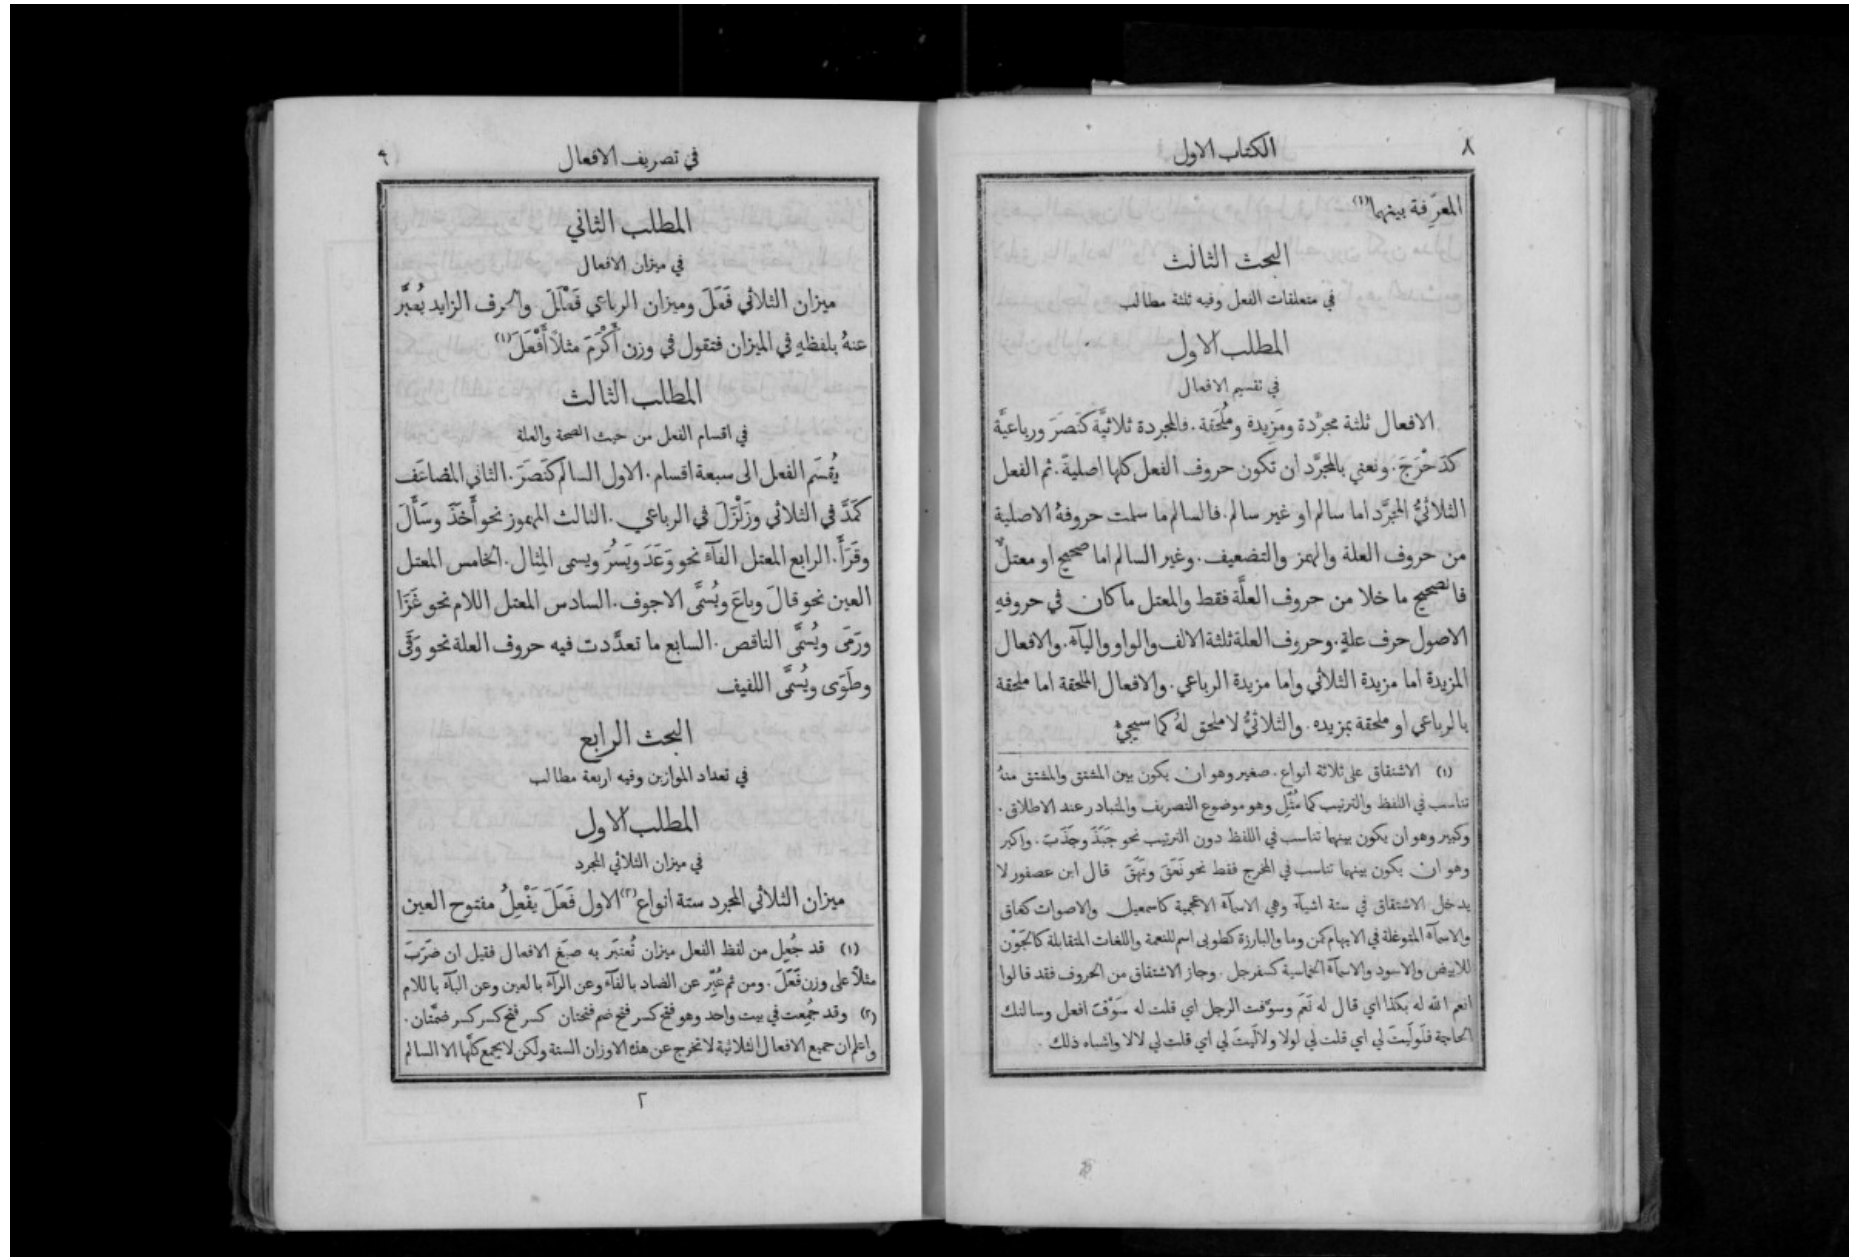 ٨
الكتاب الاول
المعرِّفة بينهما(١)
البحث الثالث
في متعلقات الفعل وفيه ثلثة مطالب
المطلب الاول
في تقسيم الافعال
الافعال ثلثة مجرَّدة ومَزِيدة ومُلحَقة. فالمجردة ثلاثيَّة كَنَصَرَ ورباعيَّة
كدَحْرَجَ. ونعني بالمجرَّد ان تكون حروف الفعل كلها اصليةً. ثم الفعل
الثلاثيُّ المجرَّد اما سالم او غير سالم. فالسالم ما سلمت حروفهُ الاصلية
من حروف العلة والهمز والتضعيف. وغير السالم اما صحيح او معتلٌّ
فالصحيح ما خلا من حروف العلَّة فقط والمعتل ما كان في حروفهِ
الاصول حرف علةٍ. وحروف العلة ثلثة الالف والواو والياۤء. والافعال
المزيدة اما مزيدة الثلاثي واما مزيدة الرباعي. والافعال الملحقة اما ملحقة
بالرباعي او ملحقة بمزيده. والثلاثيُّ لا ملحق لهُ كما سيجيءُ
(١) الاشتقاق على ثلاثة انواع. صغير وهو ان يكون بين المشتق والمشتق منهُ
تناسب في اللفظ والترتيب كما مُثِّل وهو موضوع التصريف والمتبادر عند الاطلاق.
وكبير وهو ان يكون بينهما تناسب في اللفظ دون الترتيب نحو جَبَذَ وجَذَبَ. واكبر
وهو ان يكون بينهما تناسب في المخرج فقط نحو نَعَقَ ونَهَقَ قال ابن عصفور لا
يدخل الاشتقاق في ستة اشياۤء وهي الاسماۤء الاعجمية كاسمعيل والاصوات كغاق
والاسماۤء المتوغلة في الابهام كمن وما والبارزة كطوبى اسم للنعمة واللغات المتقابلة كالجَوْن
للابيض والاسود والاسماۤء الخماسية كسفرجل. وجاز الاشتقاق من الحروف فقد قالوا
انعم الله له بكذا اي قال له نَعَم وسوّفت الرجل اي قلت له سَوْفَ افعل وسالتك
الحاجة فلَولَيتَ لي اي قلت لي لولا ولالَيتَ لي اي قلت لي لالا واشباه ذلك.
في تصريف الافعال
٩
المطلب الثاني
في ميزان الافعال
ميزان الثلاثي فَعَلَ وميزان الرباعي فَعْلَلَ. والحرف الزايد يُعبَّر
عنهُ بلفظهِ في الميزان فتقول في وزن أَكْرَمَ مثلاً أَفْعَلَ(١)
المطلب الثالث
في اقسام الفعل من حيث الصحة والعلة
يُقسَم الفعل الى سبعة اقسام. الاول السالم كَنَصَرَ. الثاني المضاعَف
كَمَدَّ في الثلاثي وزَلْزَلَ في الرباعي. الثالث المهموز نحو أَخَذَ وسَأَلَ
وقَرَأَ. الرابع المعتل الفاۤء نحو وَعَدَ ويَسُرَ ويسمى المِثال. الخامس المعتل
العين نحو قالَ وباعَ ويُسمَّى الاجوف. السادس المعتل اللام نحو غَزَا
ورَمَى ويُسمَّى الناقص. السابع ما تعدَّدت فيه حروف العلة نحو وَقَى
وطَوَى ويُسمَّى اللفيف
البحث الرابع
في تعداد الموازين وفيه اربعة مطالب
المطلب الاول
في ميزان الثلاثي المجرد
ميزان الثلاثي المجرد ستة انواع(٢) الاول فَعَلَ يَفْعِلُ مفتوح العين
(١) قد جُعِل من لفظ الفعل ميزان تُعتبَر به صيَغ الافعال فقيل ان ضَرَبَ
مثلاً على وزن فَعَلَ. ومن ثم عُبِّر عن الضاد بالفاۤء وعن الراۤء بالعين وعن الباۤء باللام
(٢) وقد جُمِعت في بيت واحد وهو فتح كسر فتح ضم فتحتان كسر فتح كسر كسر ضمَّتان.
واعلم ان جميع الافعال الثلاثية لا تخرج عن هذه الاوزان الستة ولكن لا يجمع كلَّها الا السالم
٢